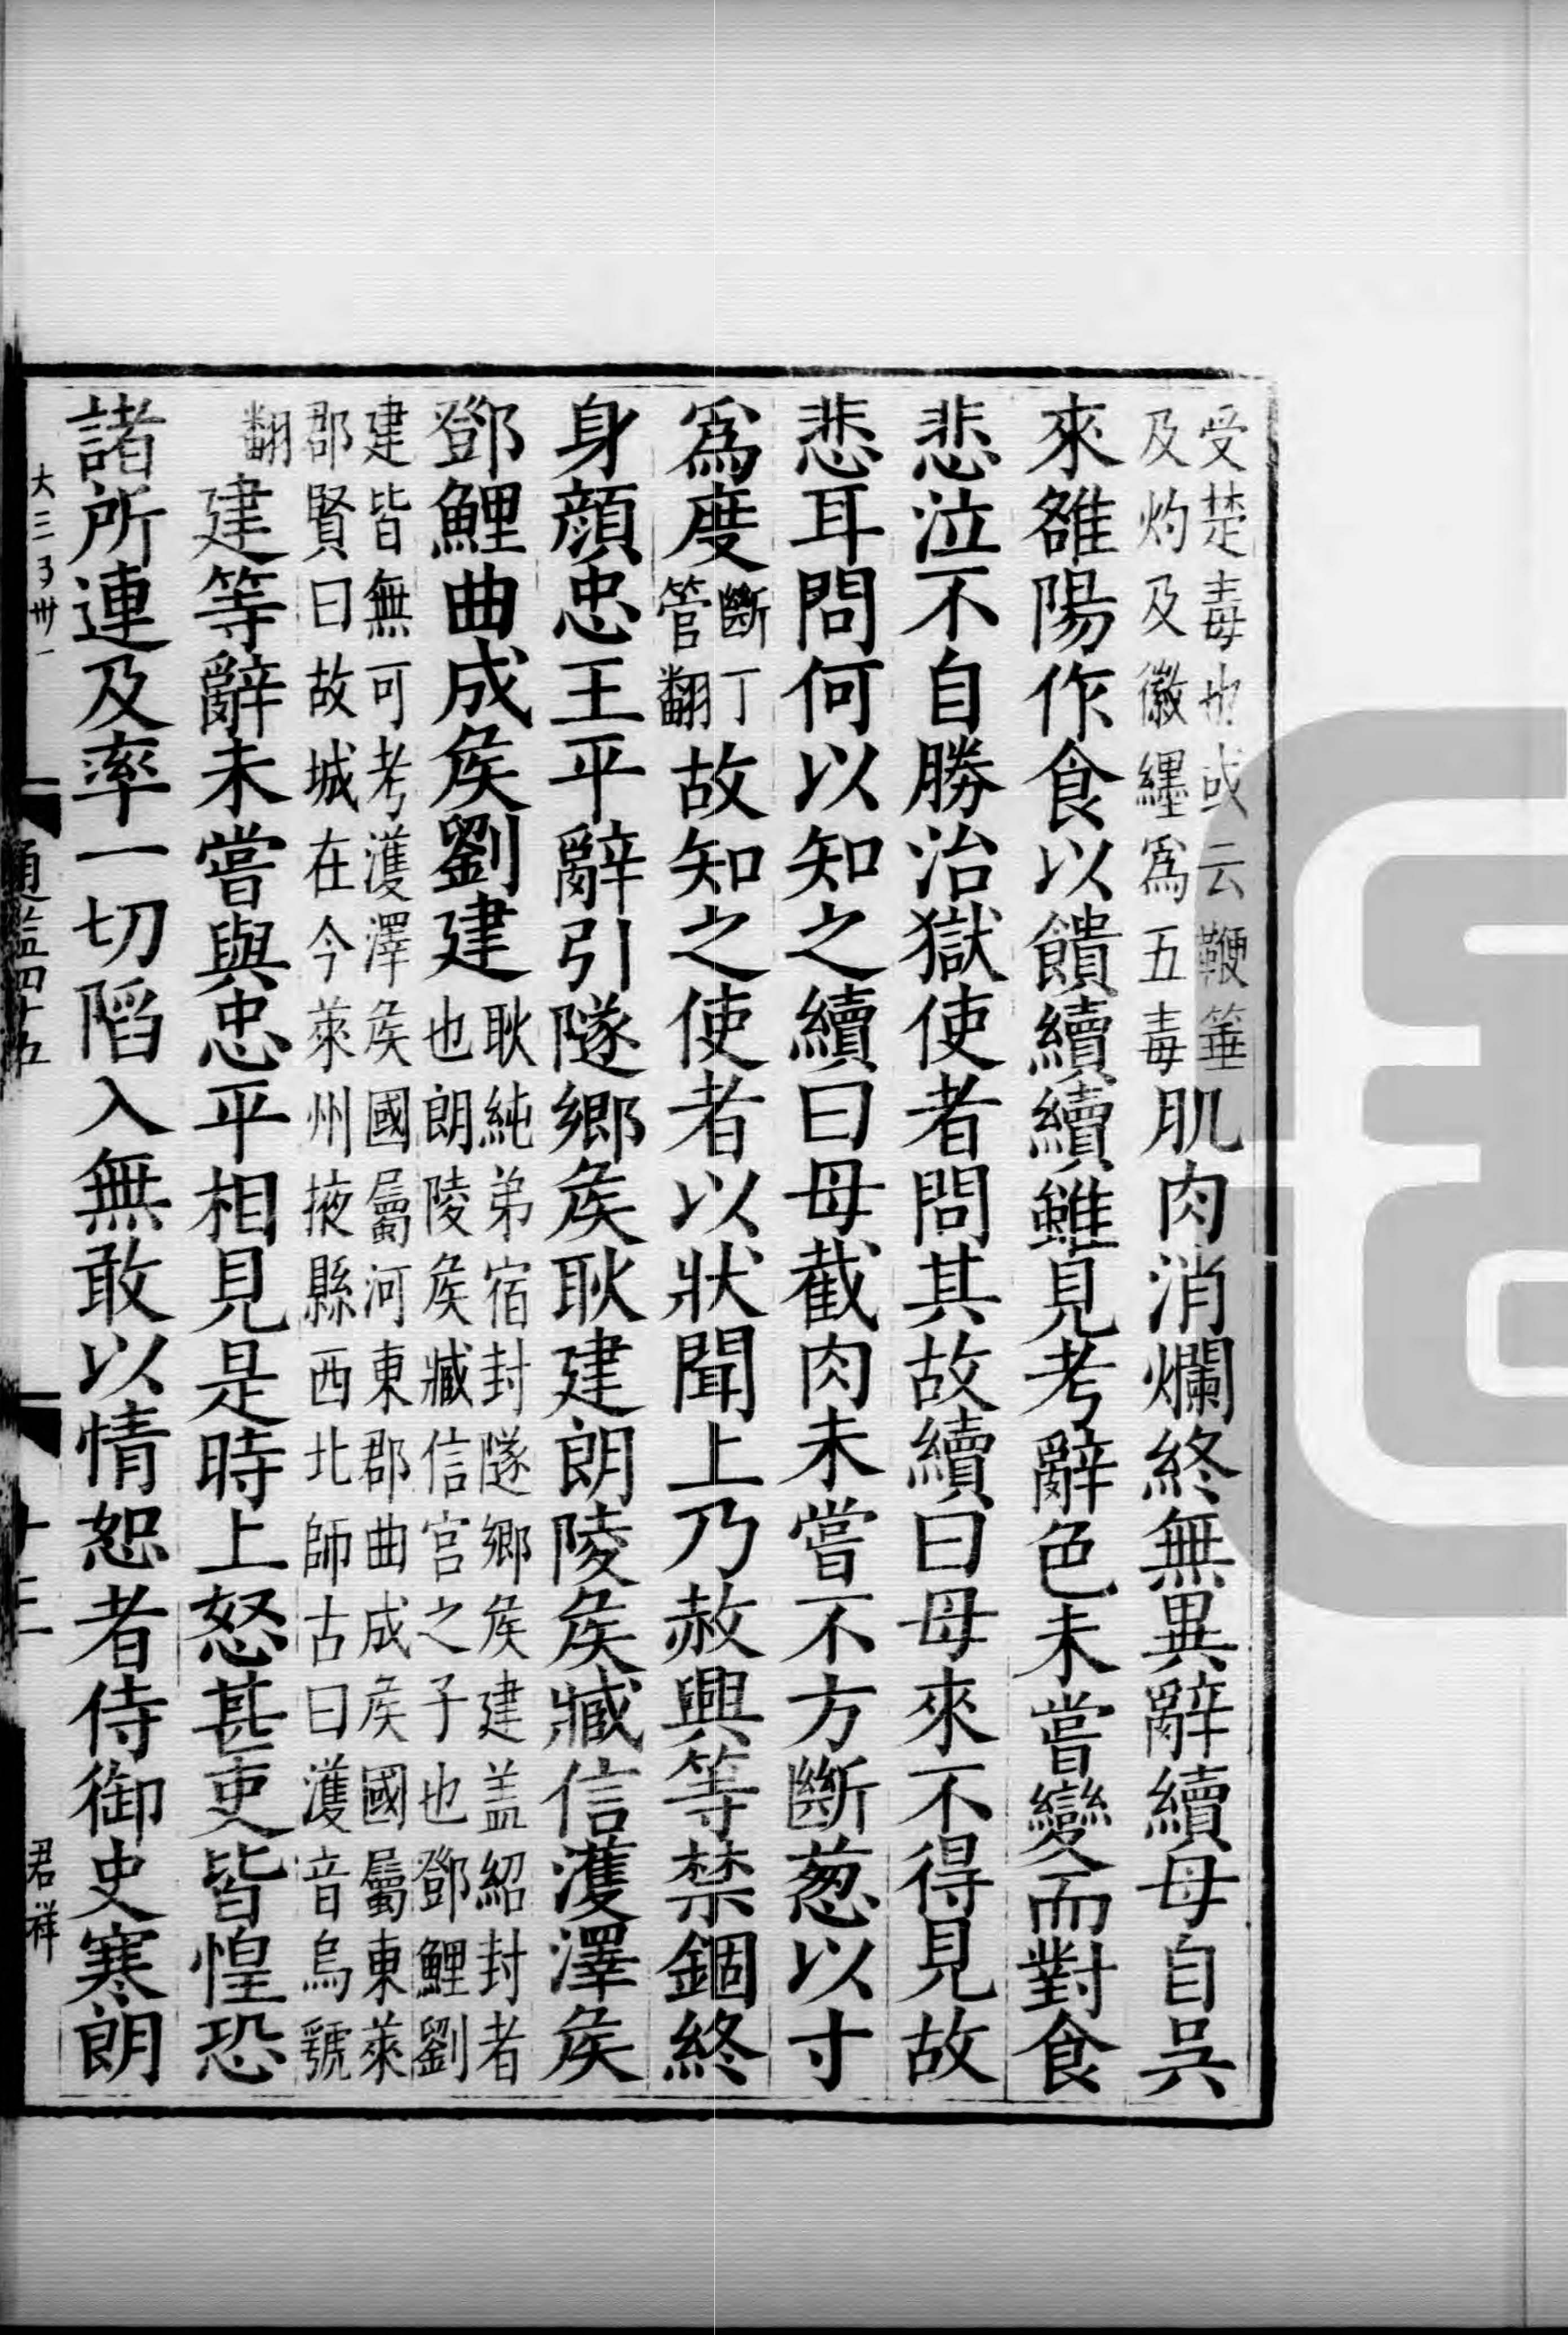 受楚毒也或云鞭箠
及灼及徽纆爲五毒
肌肉消爛終無異辭續母自吳
來雒陽作食以饋續續雖見考辭色未嘗變而對食
悲泣不自勝治獄使者問其故續曰母來不得見故
悲耳問何以知之續曰母截肉未嘗不方斷葱以寸
爲度
斷丁
管翻
故知之使者以狀聞上乃赦興等禁錮終
身顔忠王平辭引隧鄉矦耿建朗陵矦臧信濩澤矦
鄧鯉曲成矦劉建
耿純弟宿封隧鄉矦建盖紹封者
也朗陵矦臧信宫之子也鄧鯉劉
建皆無可考濩澤矦國屬河東郡曲成矦國屬東萊
郡賢曰故城在今萊州掖縣西北師古曰濩音烏虢
翻
建等辭未嘗與忠平相見是時上怒甚吏皆惶恐
諸所連及率一切陷入無敢以情恕者侍御史寒朗
通鑑四十五
十三
君祥